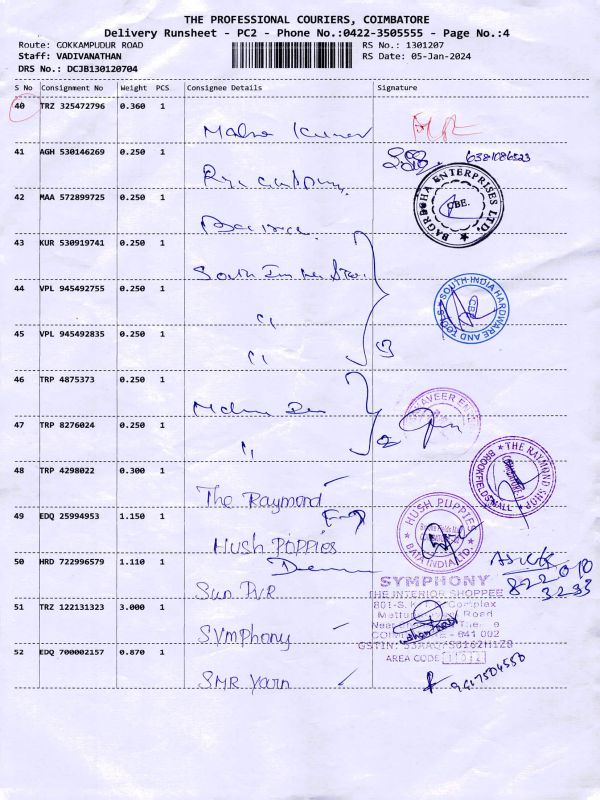 THE PROFESSIONAL COURIERS, COIMBATORE
Delivery Runsheet - PC2 - Phone No.:0422-3505555 - Page No.:4
Route: GOKKAMPUDUR ROAD
RS No.: 1301207
Staff: VADIVANATHAN
RS Date: 05-Jan-2024
DRS No.: DCJB130120704
S No Consignment No Weight PCS Consignee Details Signature
40 TRZ 325472796 0.360 1
Kumar
41 AGH 530146269 0.250 1
6381086523
42 MAA 572899725 0.250 1
BAGREEHA ENTERPRISES LTD. CBE.
43 KUR 530919741 0.250 1
South
44 VPL 945492755 0.250 1
SOUTH INDIA HARDWARE AND TOOLS CBE
45 VPL 945492835 0.250 1
46 TRP 4875373 0.250 1
47 TRP 8276024 0.250 1
48 TRP 4298022 0.300 1
The Raymond
THE RAYMOND SHOP BROOKFIELDS MALL
49 EDQ 25994953 1.150 1
Hush Poppies
HUSH PUPPIES BATA INDIA LTD.
50 HRD 722996579 1.110 1
Sun PVR
822010
3293
51 TRZ 122131323 3.000 1
Symphony
SYMPHONY
THE INTERIOR SHOPPEE
Complex
Road
641 002
AREA CODE
52 EDQ 700002157 0.870 1
SMR Yarn